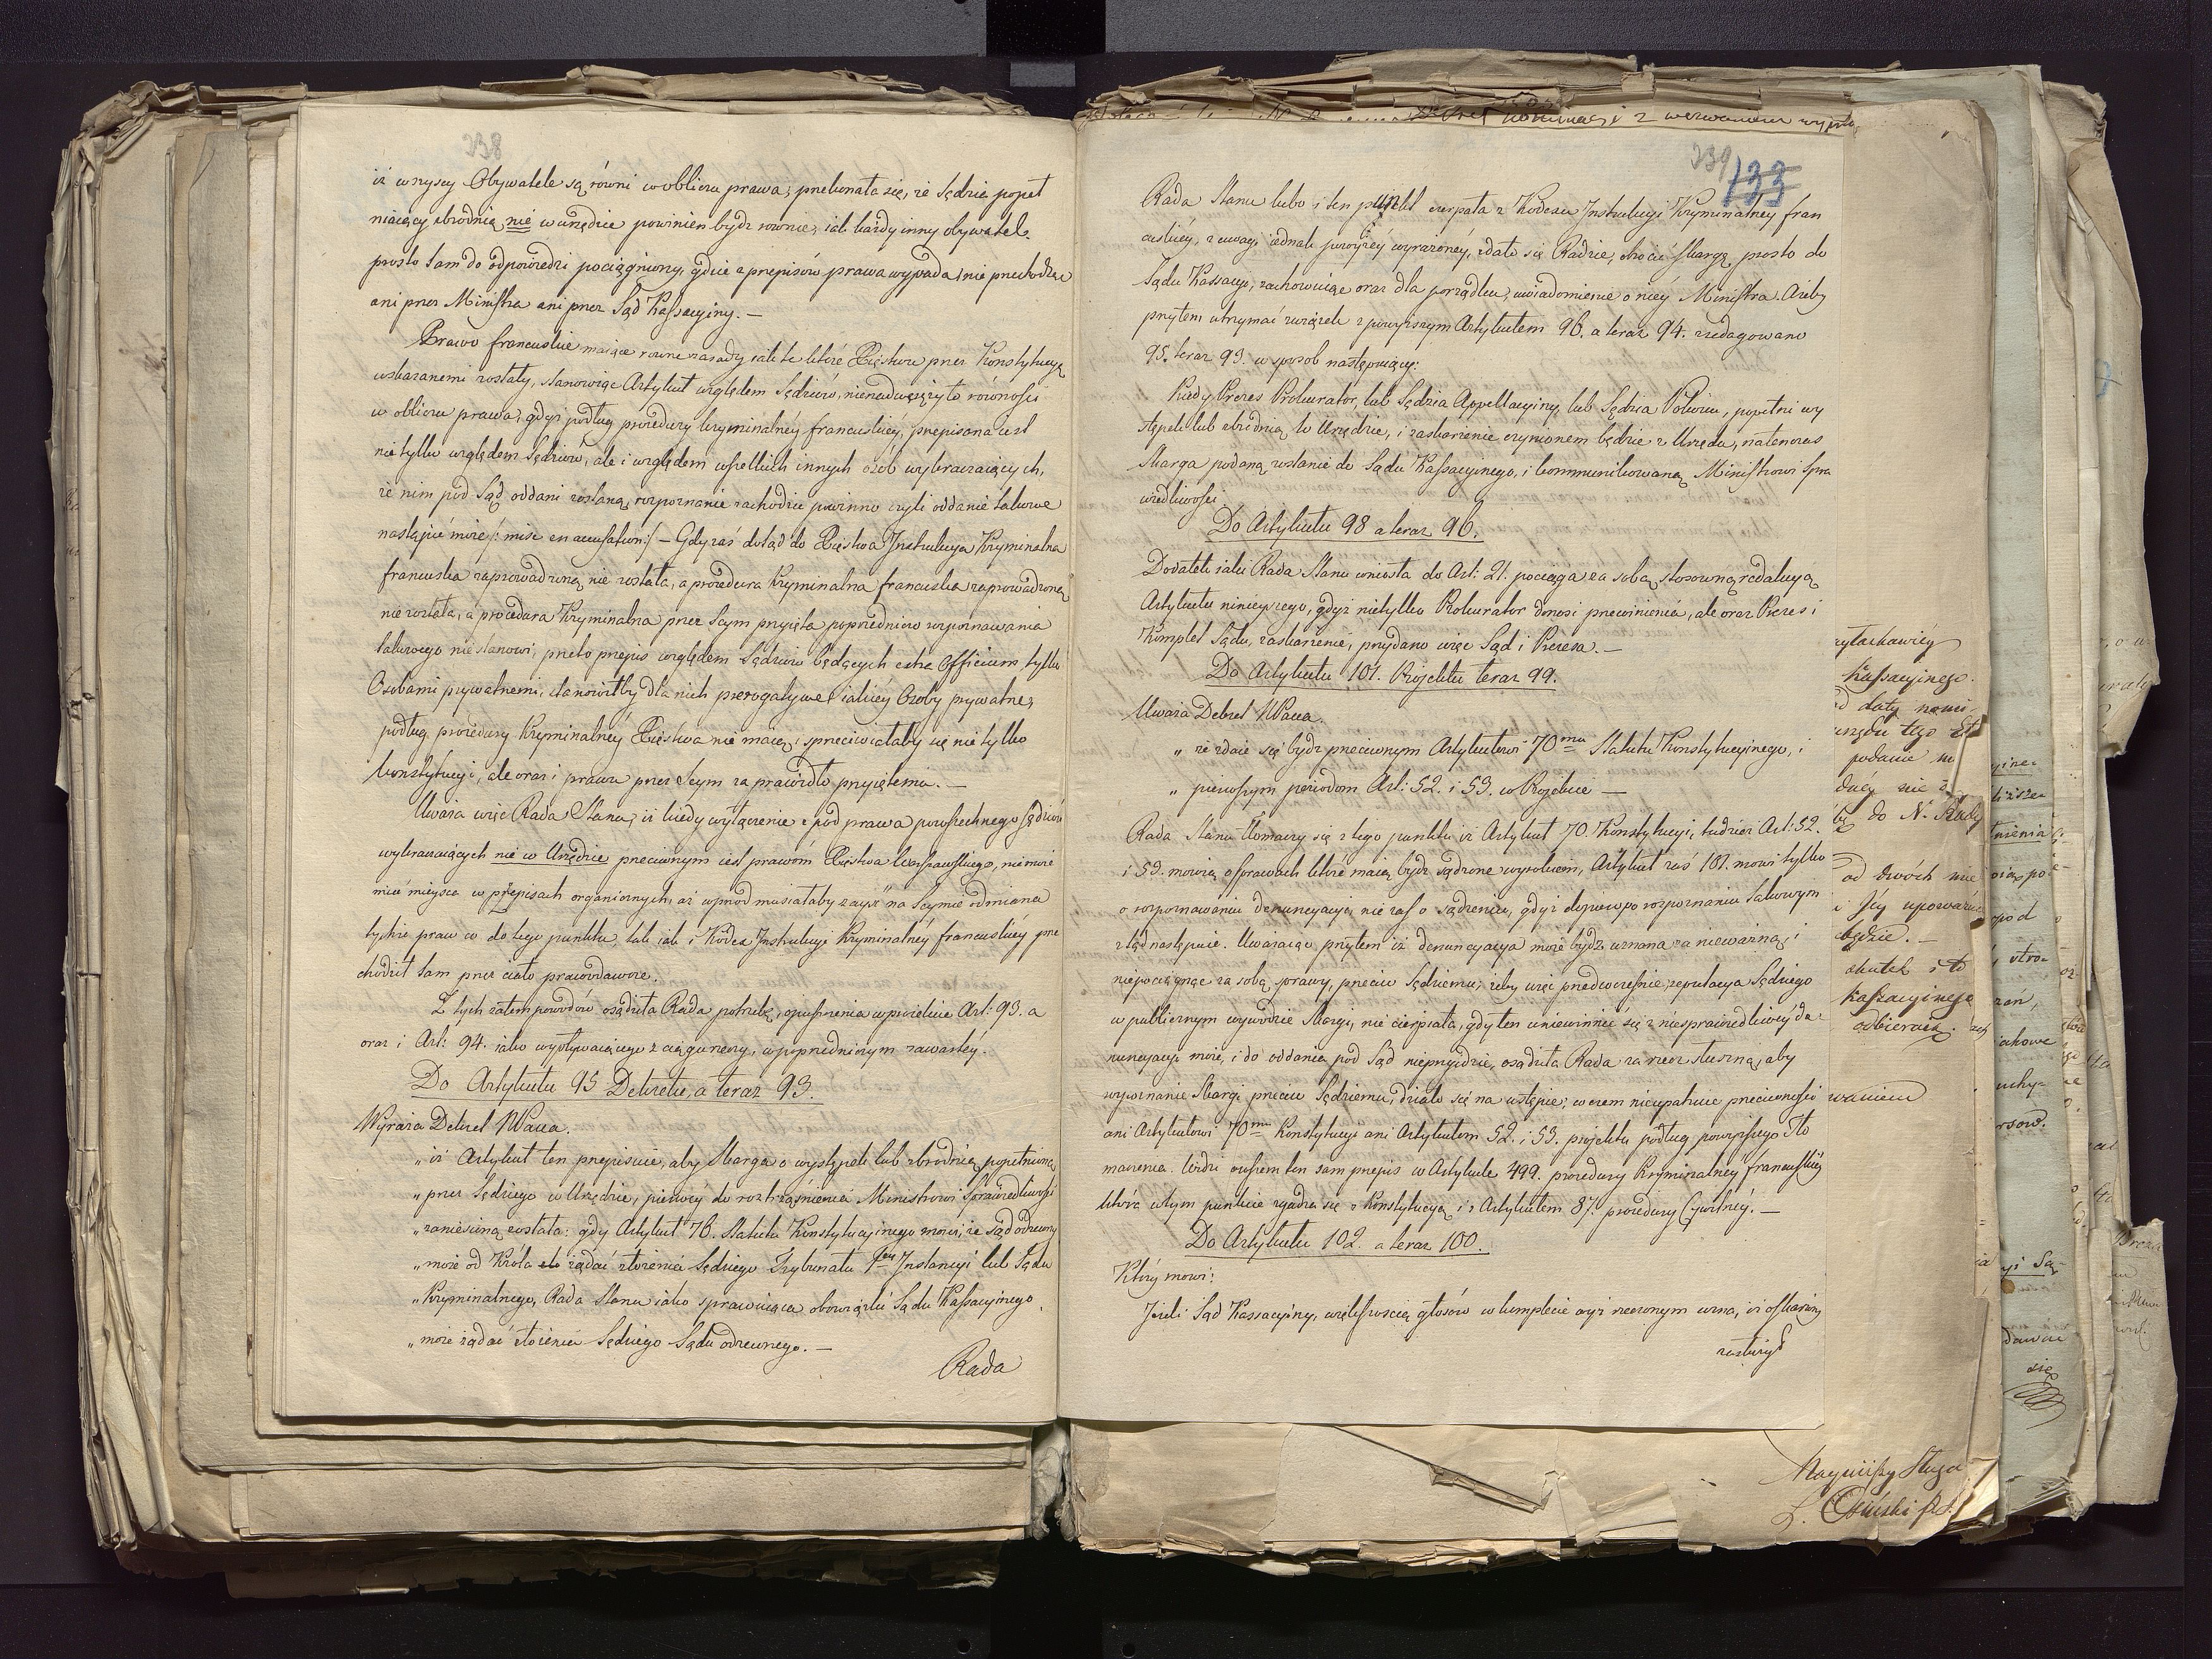 238
iż wszyscy Obywatele są równi w obliczu prawa; przekonała się, że Sędzia popeł
niaiący zbrodnią nie w urzędzie powinien bydź równie, iak każdy inny obywatel
prosto sam do odpowiedzi pociągniony, gdzie z przepisów prawa wypada, nie przechodząc
ani przez Ministra ani przez Sąd Kassacyiny. —
Prawo francuskie maiące równe zasady iak te które Xięstwu przez Konstytucyą
wskazanemi zostały, stanowiąc Artykuł względem Sędziów, nienadwerężyło równości
w obliczu prawa, gdyż podług procedury kryminalnéy francuskiéy, przepisana iest
nie tylko względem Sędziów, ale i względem wszelkich innych osób wykraczaiących,
że nim pod Sąd oddani zostaną, rozpoznanie zachodzić powinno czyli oddanie takowe
nastąpić może /: mise en accusation:/ — Gdy zaś dotąd do Xięstwa Instrukcya Kryminalna
francuska zaprowadzoną nie została, a procedura Kryminalna francuska zaprowadzoną
nie została, a procedura Kryminalna przez Seym przyięta poprzedniczo rozpoznawania
takowego nie stanowi, przeto przepis względem Sędziów będących extra Officium tylko
Osobami prywatnemi, stanowiłby dla nich prerogatywę iakiéy Osoby prywatne,
podług procedury Kryminalnéy Xięstwa nie maią, i sprzeciwiałaby się nie tylko
konstytucyi, ale oraz i prawu przez Seym za prawidło przyiętemu. —
Uważa więc Rada Stanu, iż kiedy wyłączenie z pod prawa powszechnego Sędziów
wykraczaiących nie w Urzędzie przeciwnym iest prawom Xięstwa Warszawskiego, nie może
mieć miejsca w przepisach organicznych, aż wprzód musiałaby zayść na Seymie odmiana
tychże praw co do tego punktu, tak iak i Kodex Instrukcyi Kryminalnéy francuskiéy prze
chodził sam przez ciało prawodawcze.
Z tych zatem powodów osądziła Rada potrzebę opuszczenia w proiekcie Art: 93. a
oraz i Art: 94. iako wypływaiącego z ciągu rzeczy, w poprzedniczym zawartéy.
Do Artykułu 95 Dekretu, a teraz 93.
Wyraża Dekret N Pana.
„ iż Artykuł ten przepisuie, aby Skarga o występek lub zbrodnię popełnioną
„ przez Sędziego w Urzędzie, pierwéy do roztrząśnienia Ministrowi Sprawiedliwości
„ zaniesioną została: gdy Artykuł 76. Statutu Konstytucyinego mówi, że sąd odezwny
„ może od Króla żądać złożenia Sędziego Trybunału 1széy Instancyi lub Sądu
„ Kryminalnego, Rada Stanu iako sprawuiąca obowiązki Sądu Kassacyinego
„ może żądać złożenia Sędziego Sądu odezwnego. —
Rada
239
133
Rada Stanu lubo i ten punkt czerpała z Kodexu Instrukcyi Kryminalnéy fran
cuskiéy, z uwagi iednak powyżéy wyrażonéy, zdało się Radzie, obrócić skargę prosto do
Sądu Kassacyi, zachowuiąc oraz dla porządku, uwiadomienie o niéy Ministra. Ażeby
przytem utrzymać związek z powyższym Artykułem 96. a teraz 94. zredagowano
95. teraz 93. w sposób następuiący:
Kiedy Prezes Prokurator, lub Sędzia Appellacyiny, lub Sędzia Pokoiu, popełni wy
stępek lub zbrodnią w Urzędzie, i zaskarżenie czynionem będzie z Urzędu, natenczas
Skarga podaną zostanie do Sądu Kassacyinego, i kommunikowaną Ministrowi Spra
wiedliwości
Do Artykułu 98 a teraz 96.
Dodatek iaki Rada Stanu wniosła do Art: 21. pociąga za sobą stosowną redakcyą
Artykułu ninieyszego, gdyż nietylko Prokurator donosi przewinienia, ale oraz Prezes i
Komplet Sądu, zaskarżenie, przydano więc Sąd i Prezesa. —
Do Artykułu 101. Projektu teraz 99.
Uważa Dekret N Pana.
„ że zdaie się bydź przeciwnym Artykułowi 70mu Statutu Konstytucyinego, i
„ pierwszym periodom Art: 52. i 53. w Projekcie —
Rada Stanu tłomaczy się z tego punktu iż Artykuł 70. Konstytucyi, tudzież Art: 52.
i 53. mówią o sprawach które maią bydź sądzone wyrokiem, Artykuł zaś 101. mówi tylko
o rozpoznawaniu denuncyacyi, nie zaś o sądzeniu, gdyż dopiero po rozpoznaniu takowym
sąd następuie. Uważaiąc przytem iż denuncyacya może bydź uznana za nieważną, i
niepociągnąć za sobą, sprawy, przeciw Sędziemu, żeby więc przedwcześnie reputacya Sędziego
w publicznym wywodzie Skargi, nie cierpiała, gdy ten uniewinnić się z niesprawiedliwéy de=
nuncyacyi może, i do oddania pod Sąd nieprzyidzie, osądziła Rada za rzecz słuszną, aby
wyznanie Skargi przeciw Sędziemu, działo się na ustępie; w czem nieupatruie przeciwności
ani Artykułowi 70mu Konstytucyi ani Artykułom 52. i 53. projektu podług powyższego tło
maczenia. Widzi owszem ten sam przepis w Artykule 499. procedury Kryminalnéy francuskiéy
która w tym punkcie zgadza się z Konstytucyą i z Artykułem 87. procedury Cywilnéy. —
Do Artykułu 102. a teraz 100.
Który mówi:
Jeżeli Sąd Kassacyiny, większością głosów w komplecie wyż rzeczonym uzna, iż oskarżony
zasłużył
Kassacyinego.
od daty nomi-
urzędu tego
podanie
do N. Rady
od dwóch
będzie. —
skutek i to
Kassacyinego
odbieraią.
waniem
Nayniższy Sługa
L. Osiński